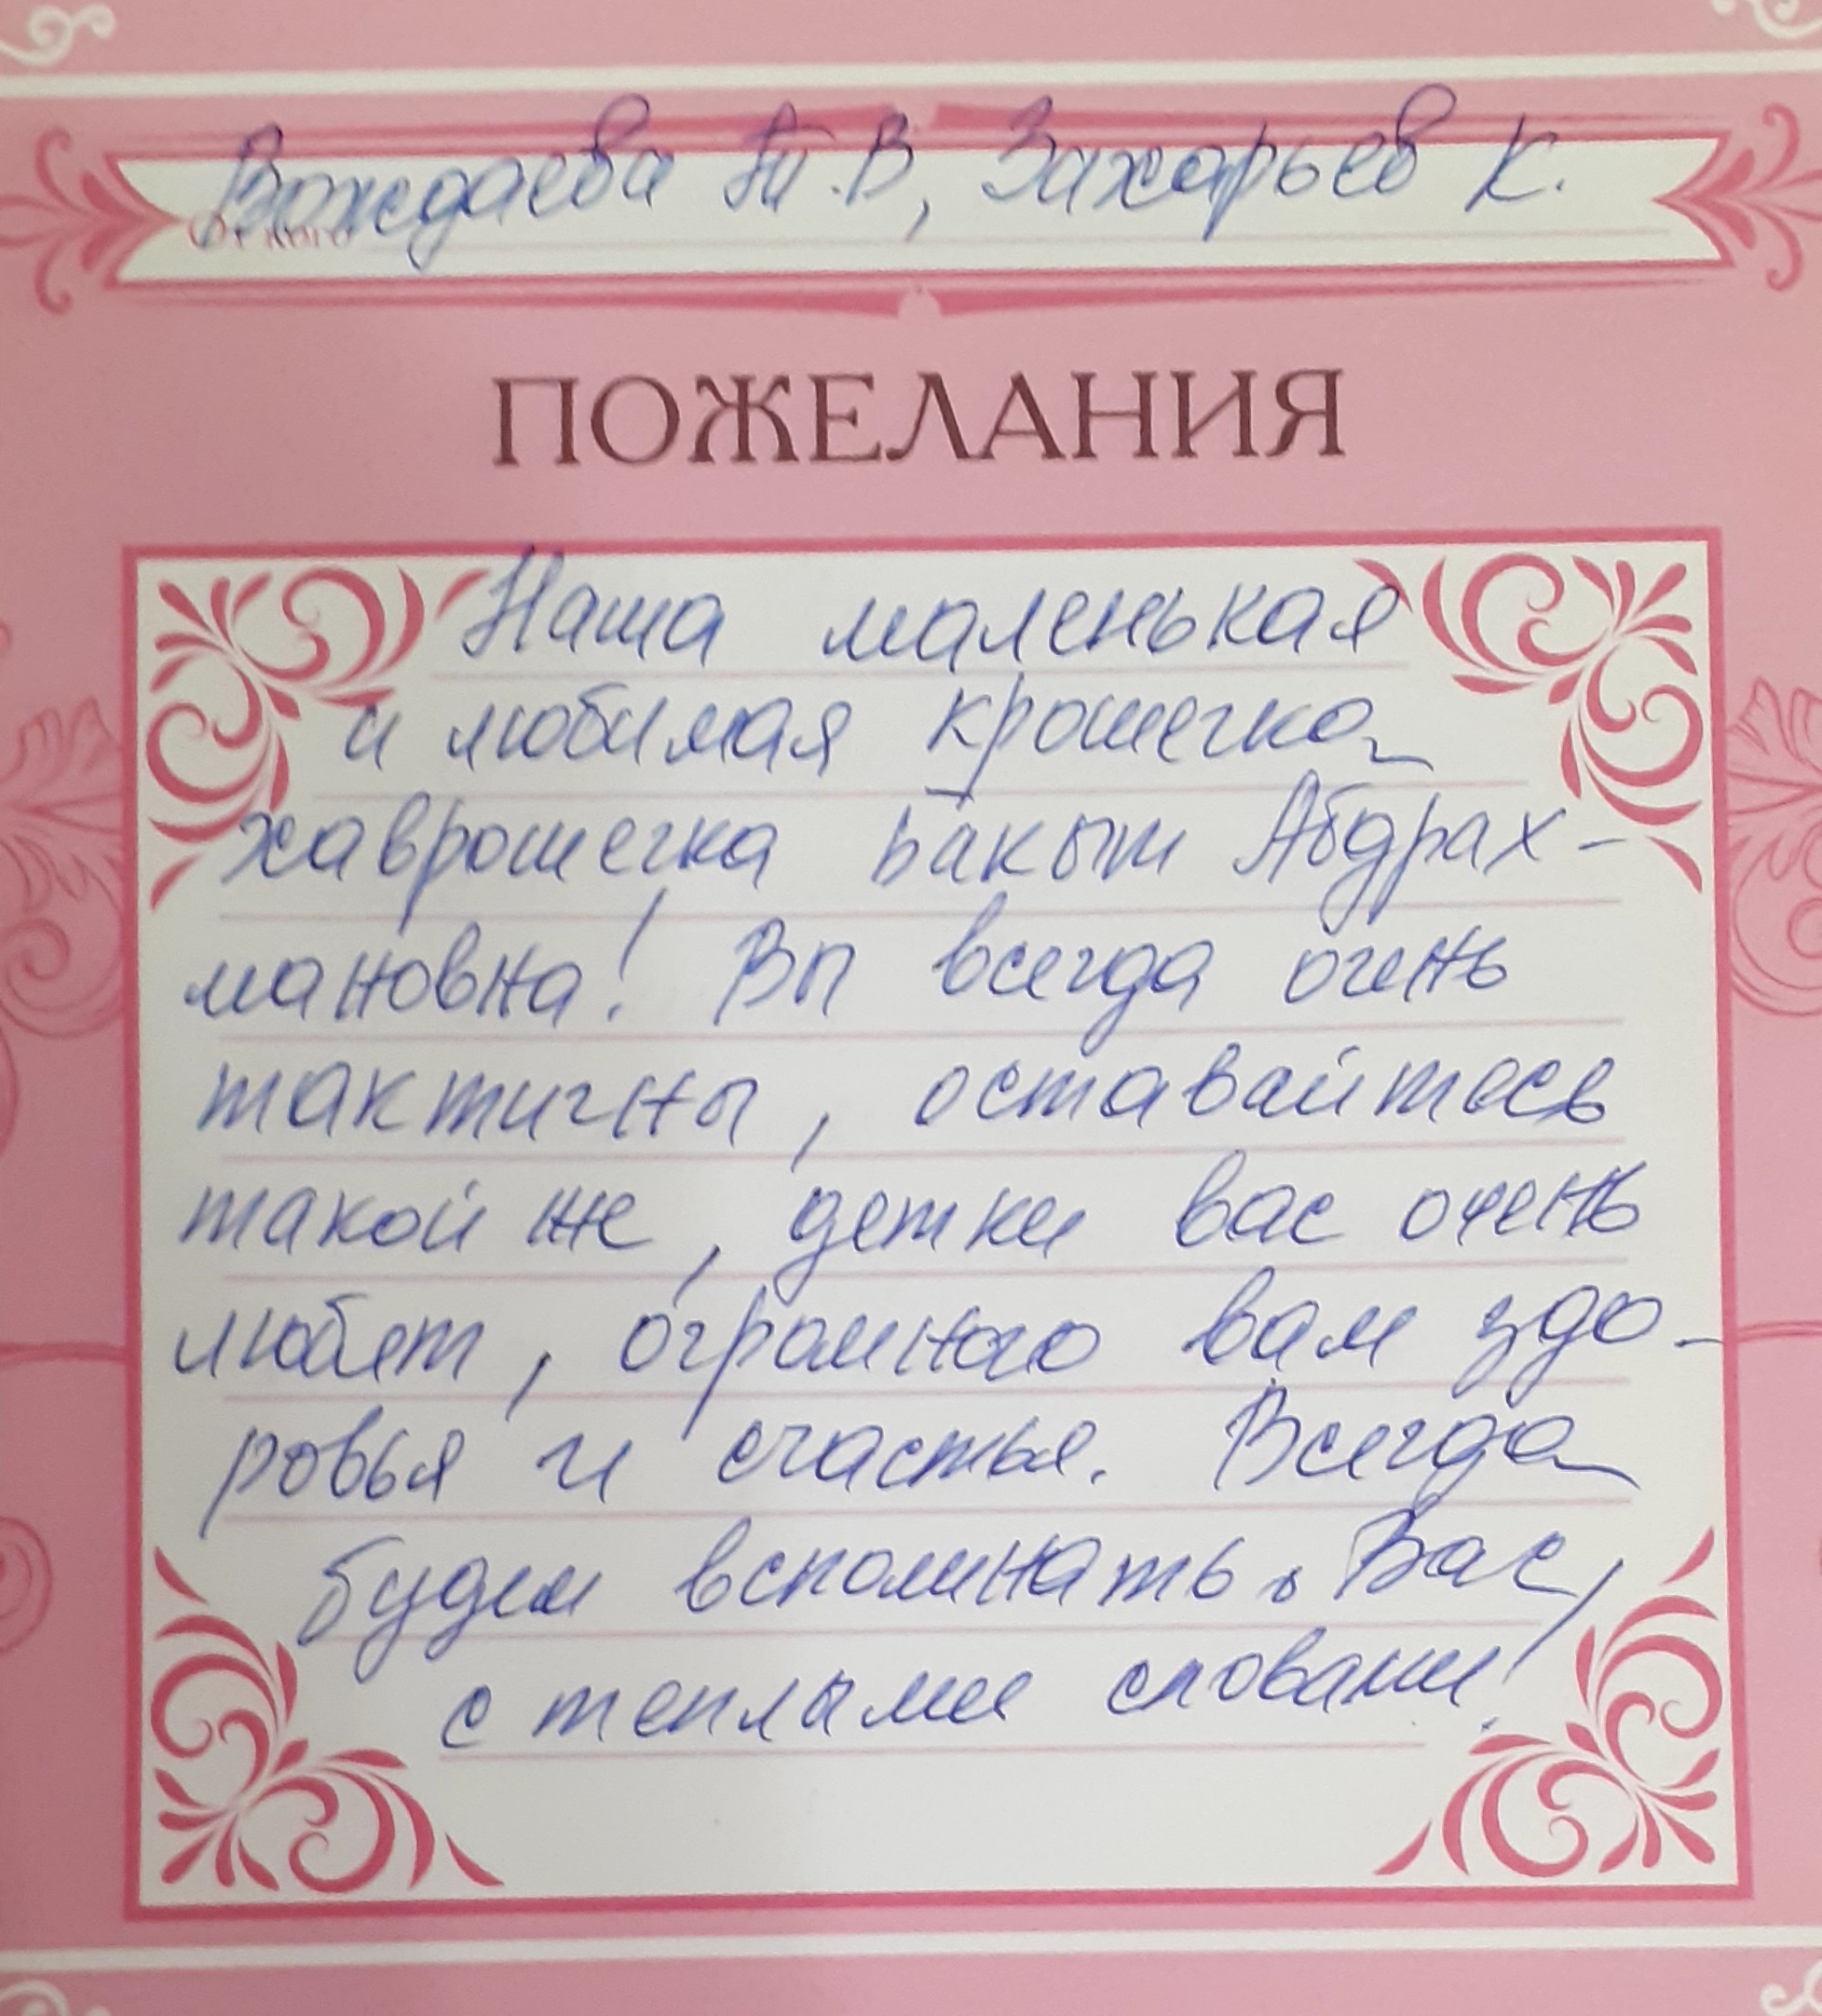 Вождаева Т.В, Захарьев К.
ПОЖЕЛАНИЯ
Наша маленькая
и любимая крошечка
хаврошечка Бакыт Абдрах-
мановна! Вы всегда очень
тактичны, оставайтесь
такой же, детки вас очень
любят, огромного вам здо-
ровья и счастья. Всегда
будем вспоминать о Вас,
с теплыми словами!